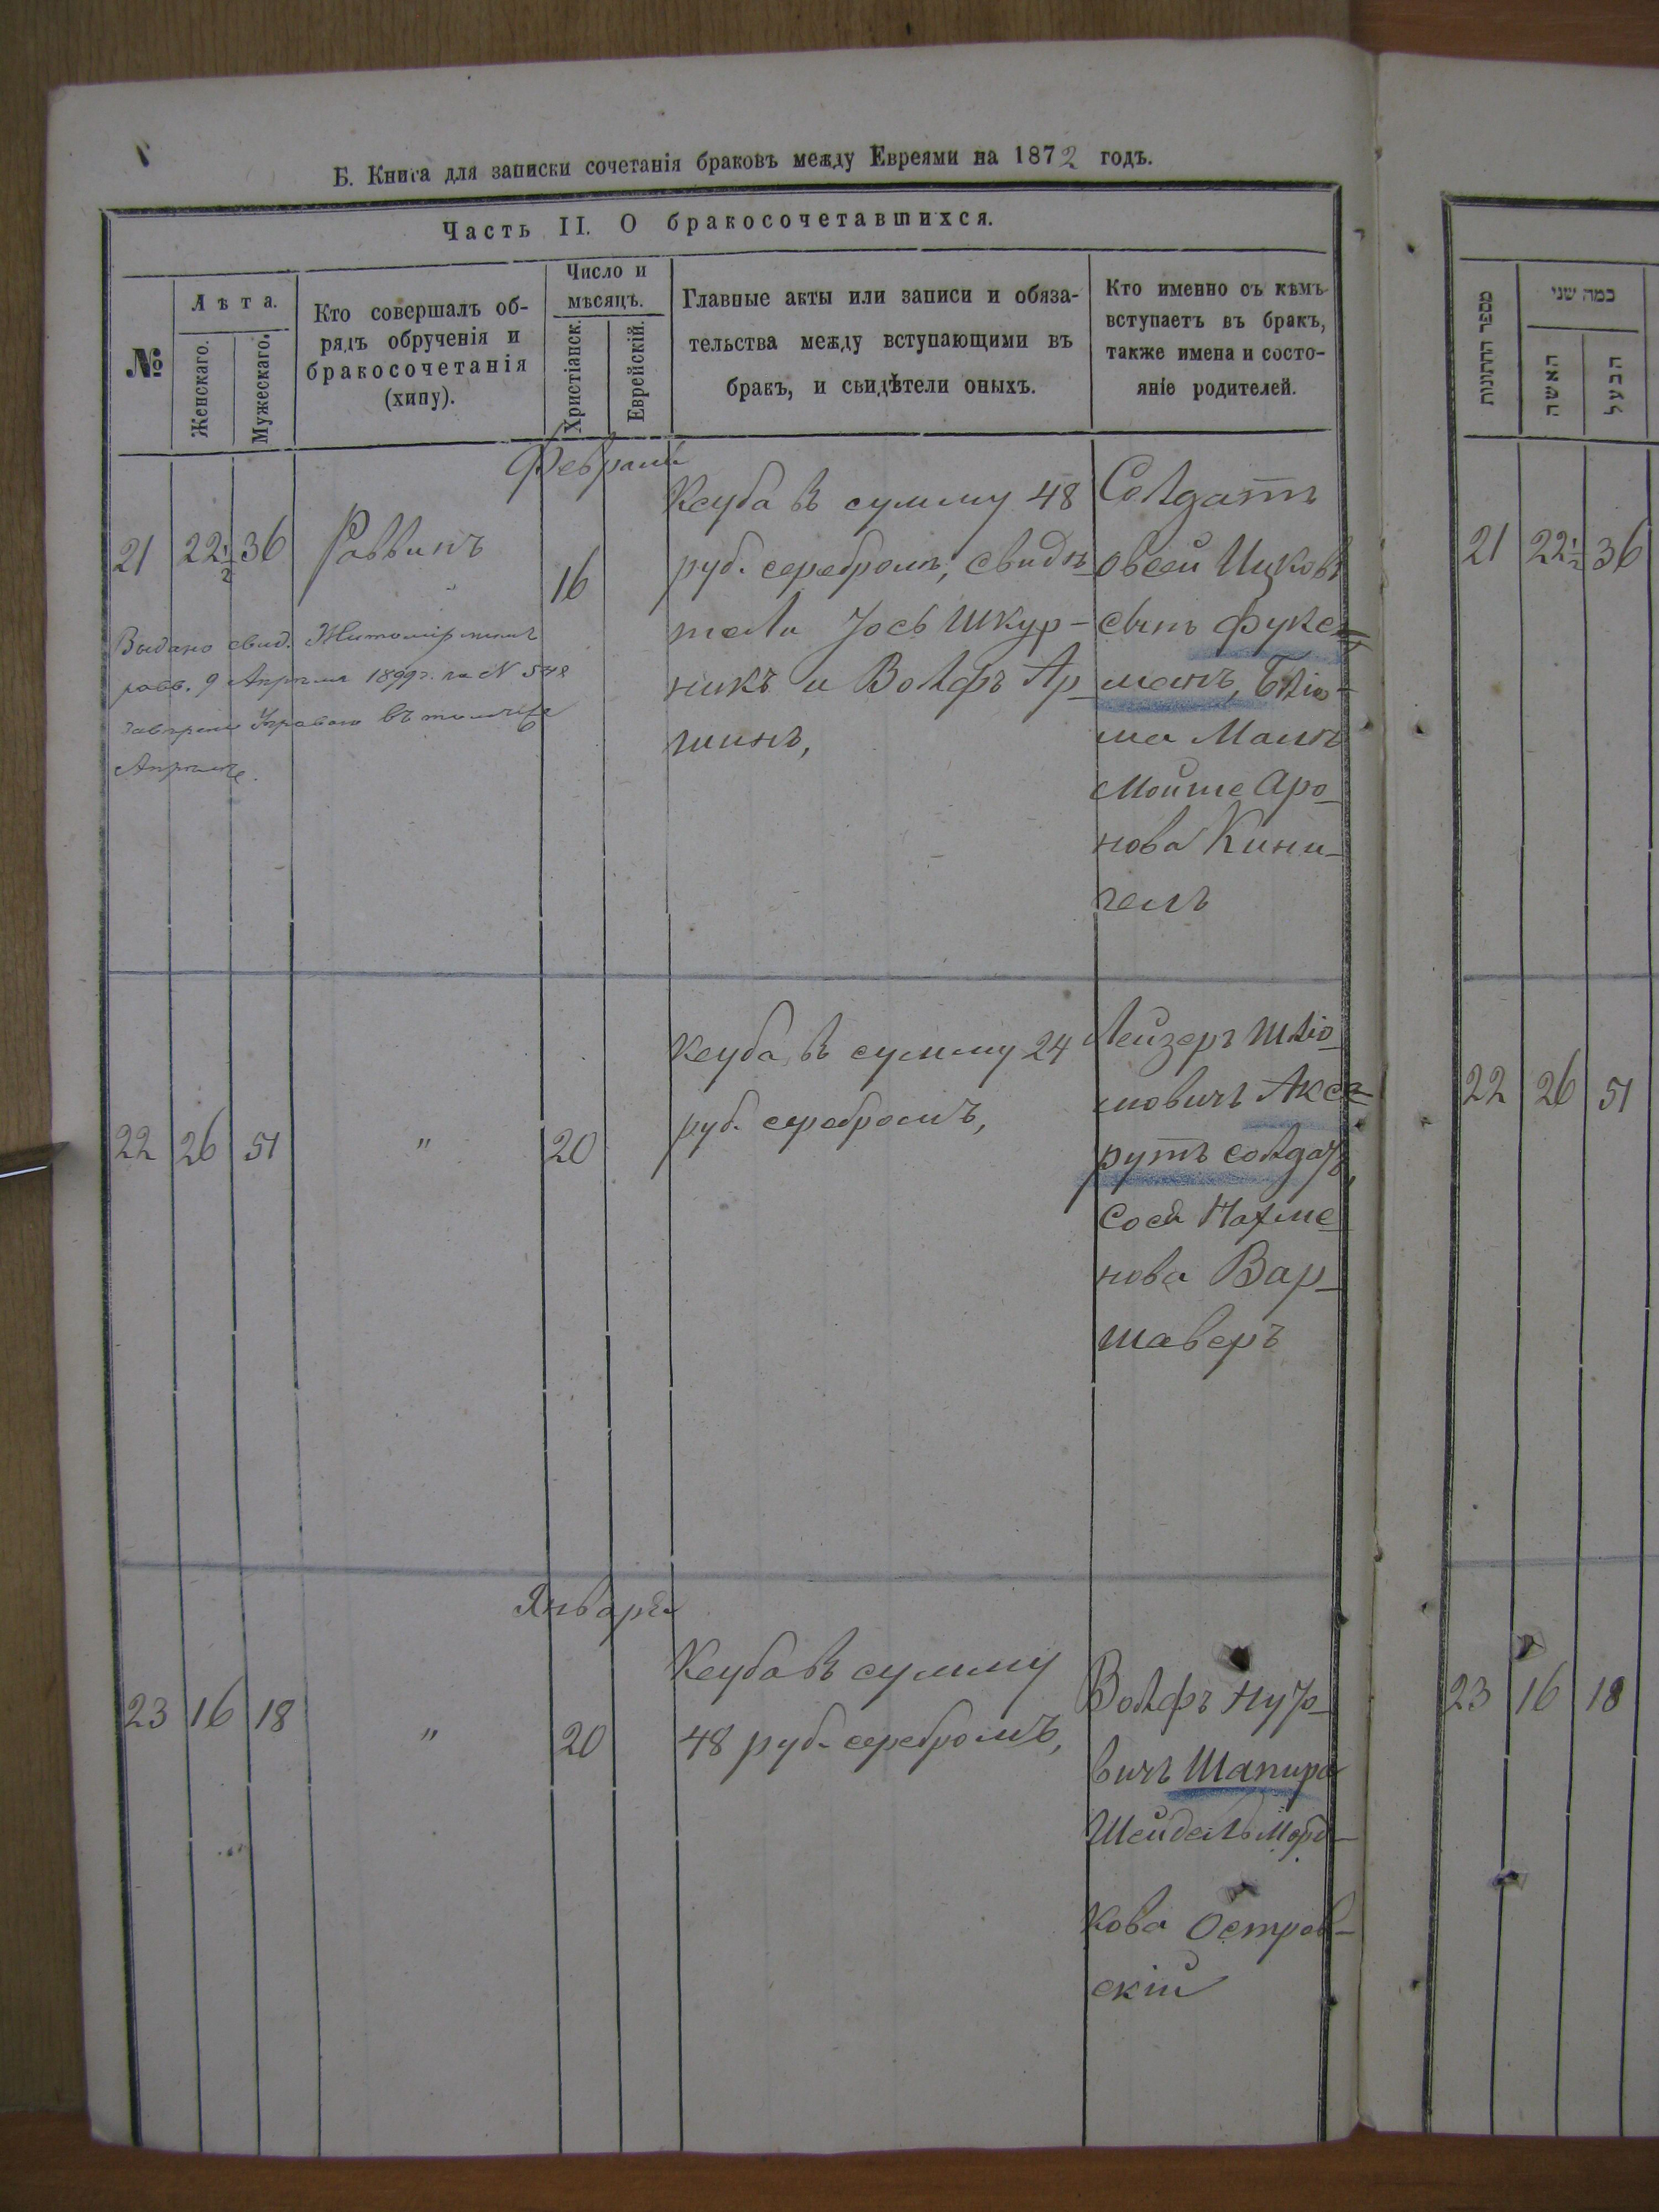 Б. Книга для записки сочетанія браковъ между Евреями на 1872 годъ.
Часть II. О бракосочетавшихся.
№
Лѣта.
Женскаго.
Мужескаго.
Кто совершалъ об-
рядъ обрученія и
бракосочетанія
(хипу).
Число и
мѣсяцъ.
Христіанск.
Еврейскій.
Главные акты или записи и обяза-
тельства между вступающими въ
бракъ, и свидѣтели оныхъ.
Кто именно съ кѣмъ
вступаетъ въ бракъ,
также имена и состо-
яніе родителей.
Февраля
21
22 1/2
36
Раввинъ
16
Кеуба въ сумму 48
руб. серебромъ, свидѣ-
тели Іось Шкур-
никъ и Волфъ Ар-
шинъ,
Солдатъ
Овсей Ицковъ
сынъ Фукс=
манъ, Блю-
ма Малкъ
Мойше Аро-
нова Кини-
гелъ
Выдано свид. Житомірскимъ
равв. 9 Апрѣля 1899 г. за N
Апрѣля.
22
26
51
"
20
Кеуба въ сумму 24
руб. серебромъ,
Лейзеръ Шлio-
мовичъ Аксе-
рутъ солдатъ,
Сося Нахме-
нова Вар-
шаверъ
Января
23
16
18
"
20
Кеуба въ сумму
48 руб. серебромъ,
Волфъ
вичъ Шапира
Шейдель Морд-
кова Остров-
скій
מספר החתונות
כמה שני
האשה
הבעל
21
22 1/2
36
22
26
51
23
16
18